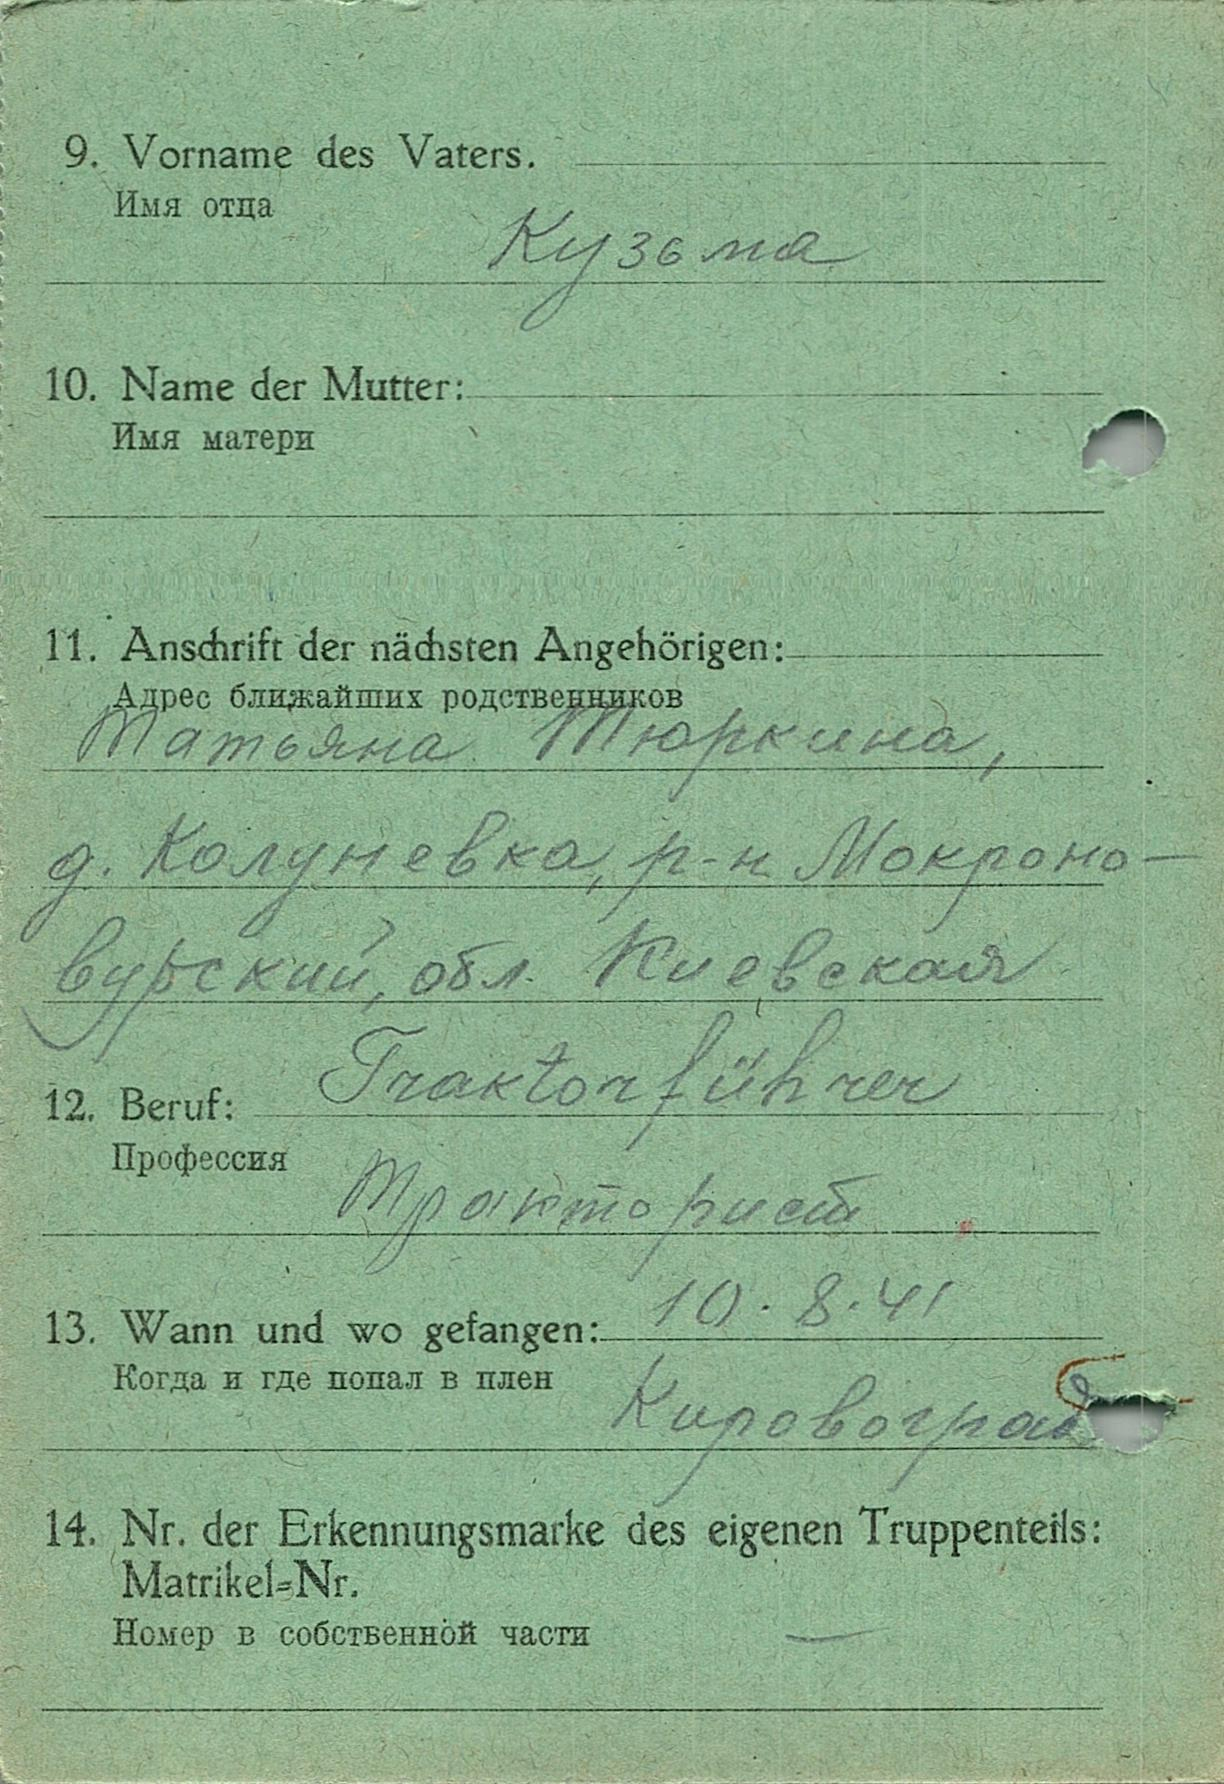 9. Vorname des Vaters.
Имя отца
Кузьма
10. Name der Mutter:
Имя матери
11. Anschrift der nächsten Angehörigen:
Адрес ближайших родственников
Татьяна Тюркина,
д. Колуневка, р-н Мокроно-
вурский, обл. Киевская
12. Beruf: Traktorführer
Профессия
Тракторист
13. Wann und wo gefangen: 10.8.41
Когда и где попал в плен
Кировоград
14. Nr. der Erkennungsmarke des eigenen Truppenteils:
Matrikel=Nr.
Номер в собственной части —